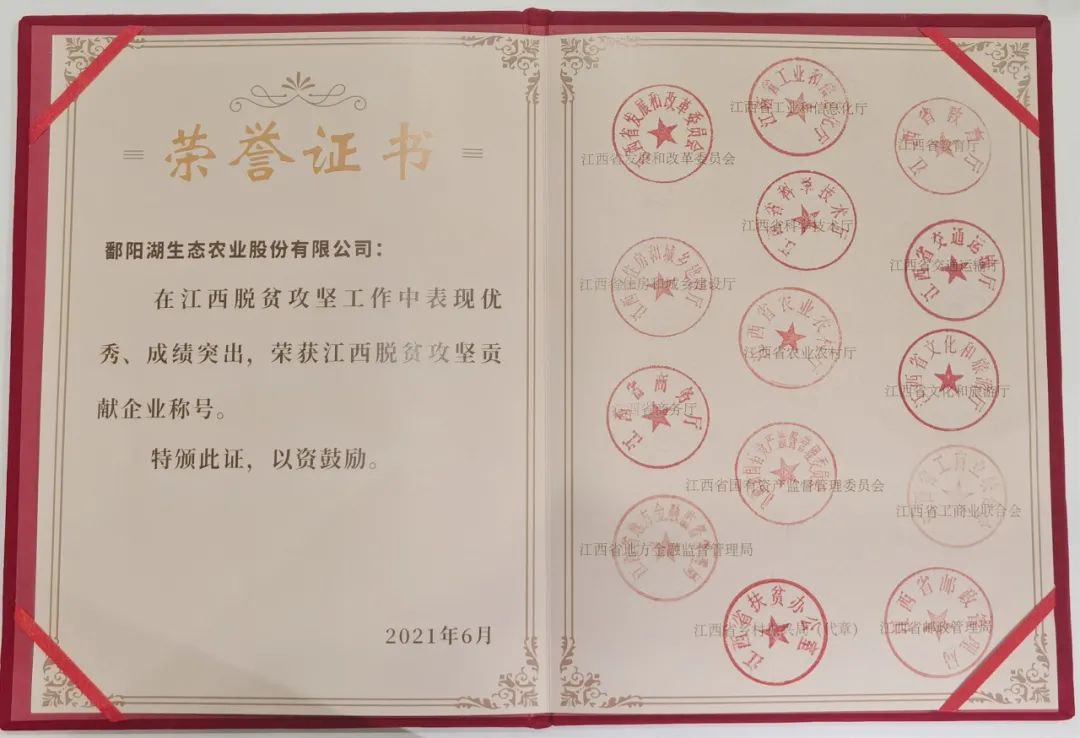 荣誉证书
鄱阳湖生态农业股份有限公司：
在江西脱贫攻坚工作中表现优
秀、成绩突出，荣获江西脱贫攻坚贡
献企业称号。
特颁此证，以资鼓励。
2021年6月
江西省发展和改革委员会
江西省工业和信息化厅
江西省教育厅
江西省科学技术厅
江西省住房和城乡建设厅
江西省交通运输厅
江西省农业农村厅
江西省商务厅
江西省文化和旅游厅
江西省国有资产监督管理委员会
江西省工商业联合会
江西省地方金融监督管理局
江西省乡村振兴局（代章）
江西省扶贫办公室
江西省邮政管理局